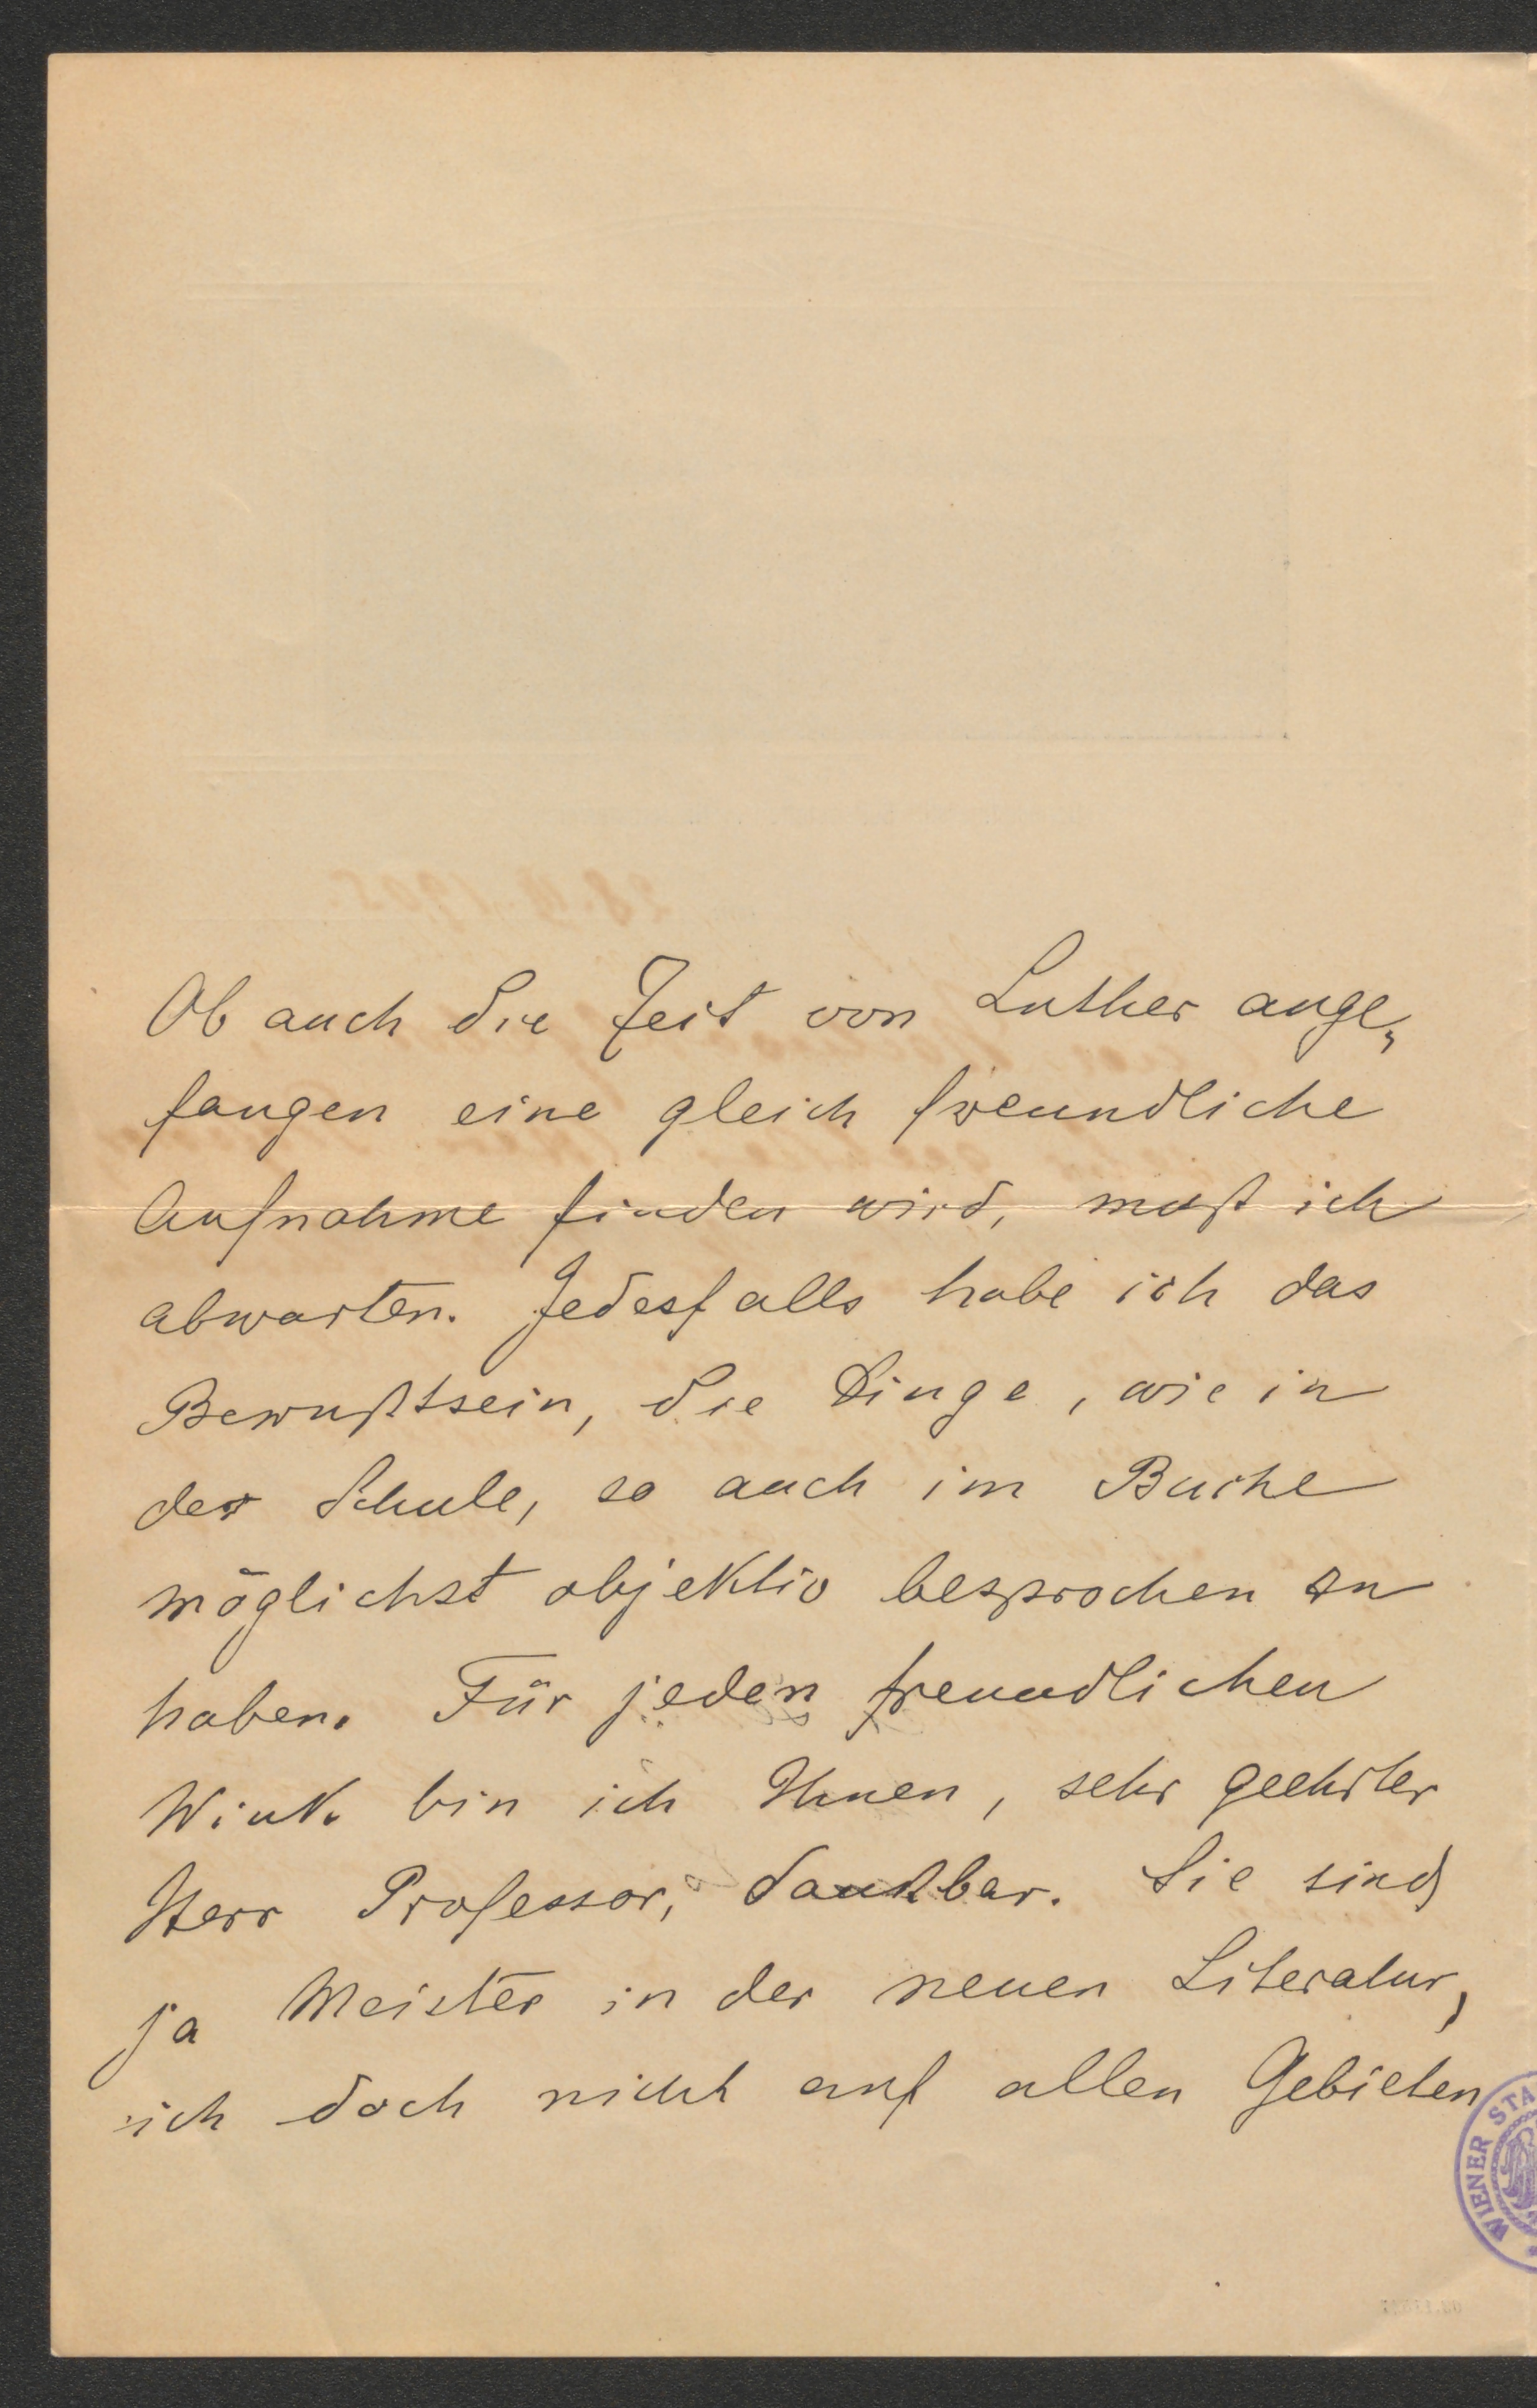 Ob auch die Zeit von Luther ange„
fangen eine gleich freundliche
Aufnahme finden wird, muß ich
abwarten. Jedesfalls habe ich das
Bewußtsein, die Dinge, wie in
der Schule, so auch im Buche
möglichst objektiv besprochen zu
haben. Für jeden freundlichen
Wink bin ich Ihnen, sehr geehrter
Herr Professor, dankbar. Sie sind
ja Meister in der neuen Literatur,
ich doch nicht auf allen Gebieten
WIENER STA